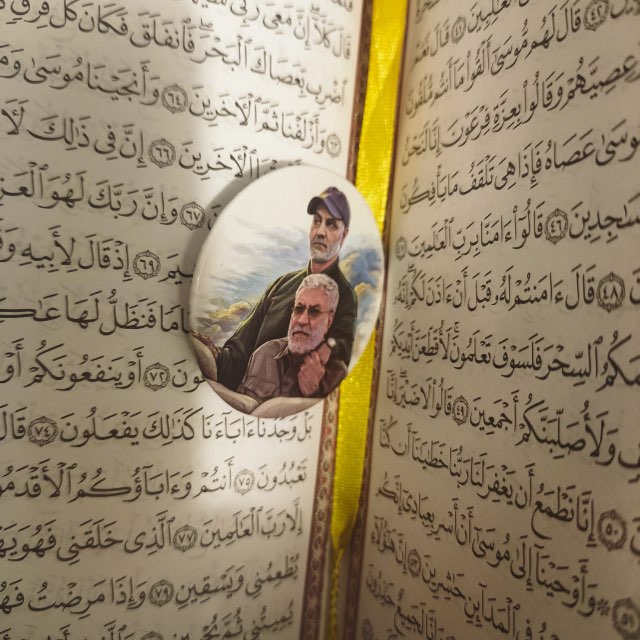 ٱلْعَٰلَمِينَ
قَالَ لَهُم مُّوسَىٰٓ أَلْقُوا۟ مَآ أَنتُم مُّلْقُونَ
وَعِصِيَّهُمْ وَقَالُوا۟ بِعِزَّةِ فِرْعَوْنَ إِنَّا لَنَحْنُ
مُوسَىٰ عَصَاهُ فَإِذَا هِىَ تَلْقَفُ مَا يَأْفِكُونَ
سَٰجِدِينَ ٤٦ قَالُوٓا۟ ءَامَنَّا بِرَبِّ ٱلْعَٰلَمِينَ
٤٨ قَالَ ءَامَنتُمْ لَهُۥ قَبْلَ أَنْ ءَاذَنَ لَكُمْ إِنَّهُۥ
ٱلسِّحْرَ فَلَسَوْفَ تَعْلَمُونَ لَأُقَطِّعَنَّ أَيْدِيَكُمْ
وَلَأُصَلِّبَنَّكُمْ أَجْمَعِينَ ٤٩ قَالُوا۟ لَا ضَيْرَ إِنَّآ
٥٠ إِنَّا نَطْمَعُ أَن يَغْفِرَ لَنَا رَبُّنَا خَطَٰيَٰنَآ أَن كُنَّآ
٥١ وَأَوْحَيْنَآ إِلَىٰ مُوسَىٰٓ أَنْ أَسْرِ بِعِبَادِىٓ إِنَّكُم
فِى ٱلْمَدَآئِنِ حَٰشِرِينَ ٥٣ إِنَّ هَٰٓؤُلَآءِ
قَالَ كَلَّآ إِنَّ مَعِىَ
ٱضْرِب بِّعَصَاكَ ٱلْبَحْرَ فَٱنفَلَقَ فَكَانَ كُلُّ فِرْقٍ
٦٣ وَأَزْلَفْنَا ثَمَّ ٱلْءَاخَرِينَ ٦٤ وَأَنجَيْنَا مُوسَىٰ وَمَن
ٱلْءَاخَرِينَ ٦٦ إِنَّ فِى ذَٰلِكَ لَءَايَةً
٦٧ وَإِنَّ رَبَّكَ لَهُوَ ٱلْعَزِيزُ
٦٩ إِذْ قَالَ لِأَبِيهِ
فَنَظَلُّ لَهَا عَٰكِفِينَ
٧٢ أَوْ يَنفَعُونَكُمْ أَوْ
بَلْ وَجَدْنَآ ءَابَآءَنَا كَذَٰلِكَ يَفْعَلُونَ ٧٤ قَالَ
تَعْبُدُونَ ٧٥ أَنتُمْ وَءَابَآؤُكُمُ ٱلْأَقْدَمُونَ
إِلَّا رَبَّ ٱلْعَٰلَمِينَ ٧٧ ٱلَّذِى خَلَقَنِى فَهُوَ يَهْدِينِ
يُطْعِمُنِى وَيَسْقِينِ ٧٩ وَإِذَا مَرِضْتُ فَهُوَ